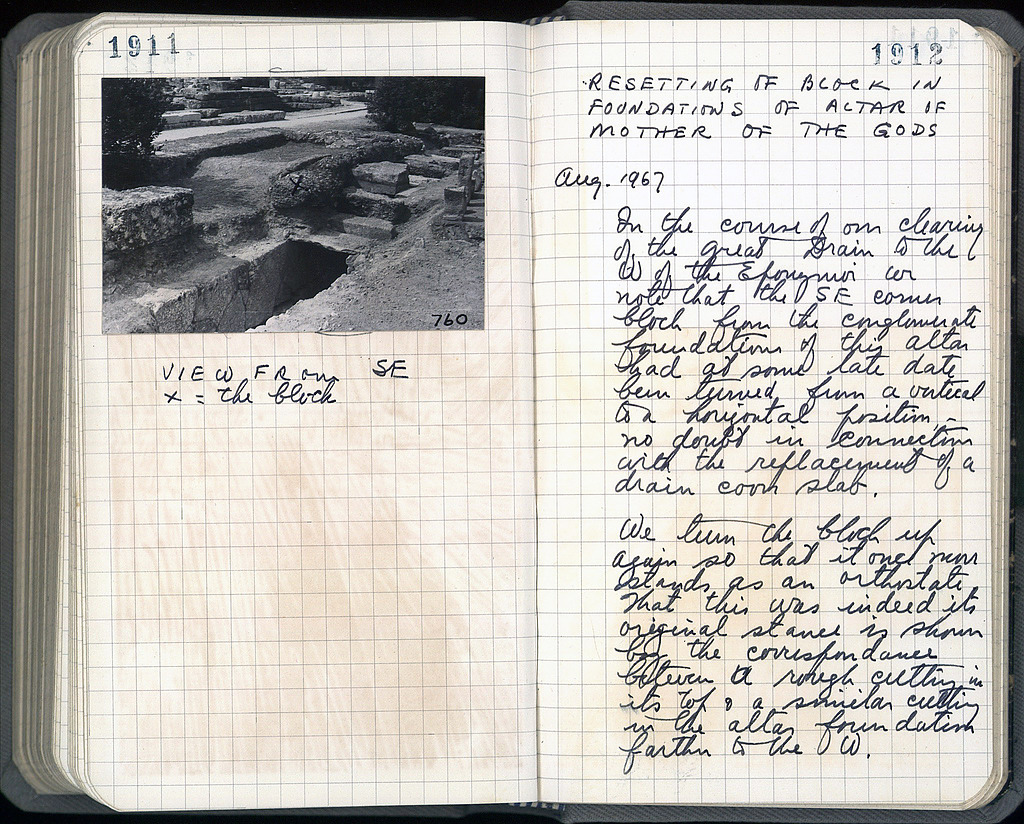 1911
760
VIEW FROM SE
x = the block
1912
RESETTING OF BLOCK IN
FOUNDATIONS OF ALTAR OF
MOTHER OF THE GODS
Aug. 1967
In the course of our clearing
of the great Drain to the
W of the Eponymoi we
note that the SE corner
block from the conglomerate
foundations of this altar
had at some late date
been turned from a vertical
to a horizontal position –
no doubt in connection
with the replacement of a
drain cover slab.
We turn the block up
again so that it once more
stands as an orthostate.
That this was indeed its
original stance is shown
by the correspondance
between a rough cutting in
its top & a similar cutting
in the altar foundation
farther to the W.